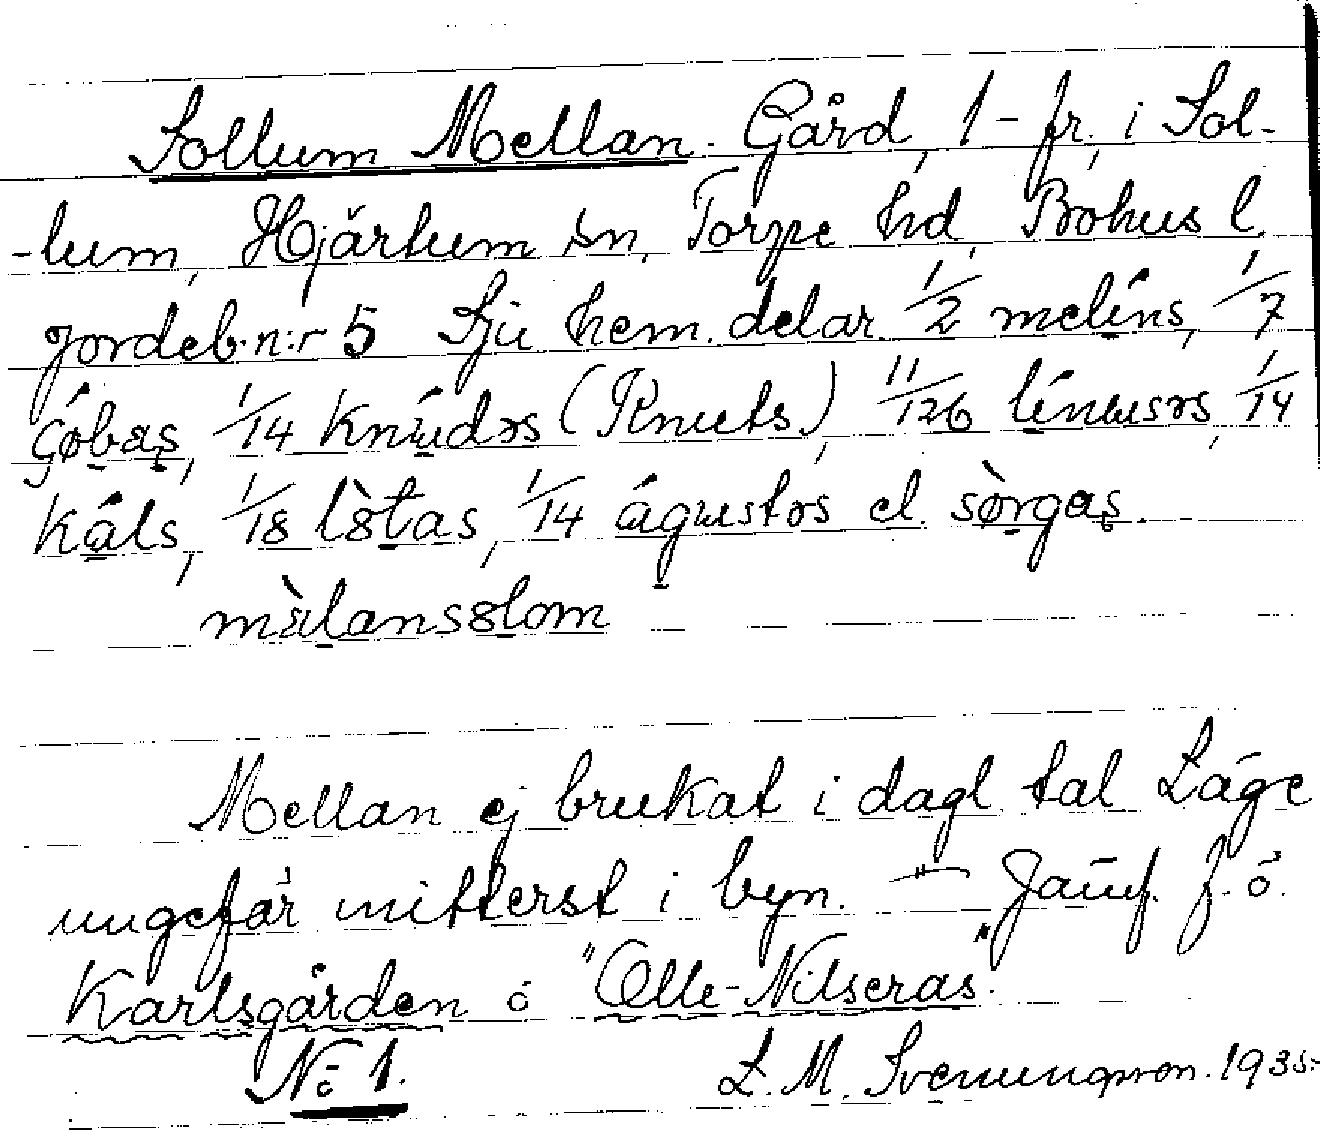 Sollum Mellan. Gård, 1-fr., i Sol-
-lum, Hjärtum sn, Torpe hd, Bohus l.
Jordeb.n:r 5 Sju hem. delar. 1/2 melíns, 1/7
gǿbas, 1/14 knúdəs (Knuts), 11/126 línusəs, 1/14
káls, 1/18 lòtas, 1/14 águstəs el. sørgas.
màlansslom
Mellan ej brukat i dagl. tal Läge
ungefär mitterst i byn. — Jämf. f. ö.
Karlsgården o "Olle-Nilseras".
No 1. L. M. Svenungsson. 1935.